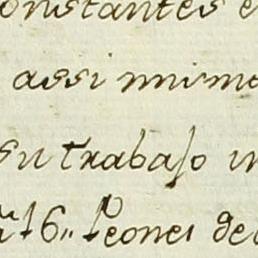 onstantes e
assi mismo
su trabajo in
16,, Peones de